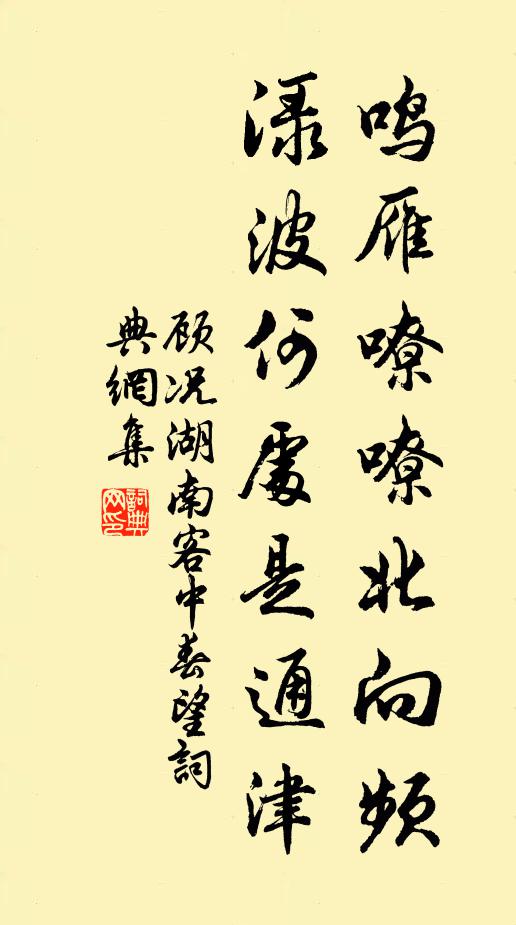 鸣雁嘹嘹北向频
渌波何處是通津
顾况湖南客中春望詞
典網集
詞典
网印